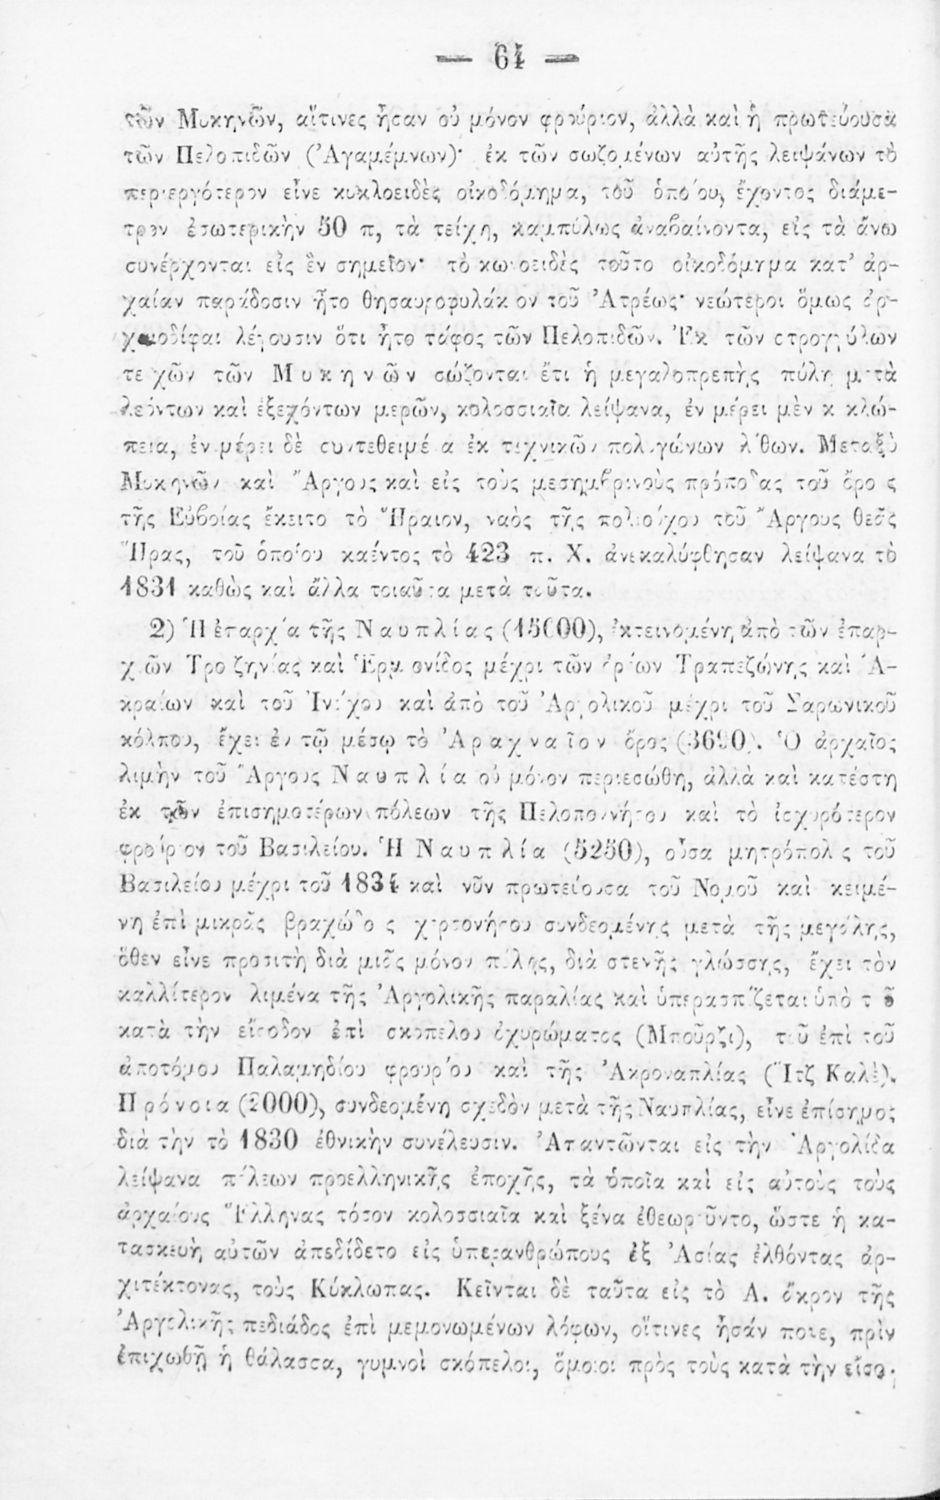 — 64 —
τῶν Μυκηνῶν, αἵτινες ἦσαν οὐ μόνον φρούριον, ἀλλὰ καὶ ἡ πρωτεύουσα
τῶν Πελοπιδῶν (Ἀγαμέμνων)· ἐκ τῶν σωζομένων αὐτῆς λειψάνων τὸ
περιεργότερον εἶνε κυκλοειδὲς οἰκοδόμημα, τοῦ ὁποίου, ἔχοντος διάμε-
τρον ἐσωτερικὴν 50 π, τὰ τείχη, καμπύλως ἀναβαίνοντα, εἰς τὰ ἄνω
συνέρχονται εἰς ἓν σημεῖον· τὸ κωνοειδὲς τοῦτο οἰκοδόμημα κατ' ἀρ-
χαίαν παράδοσιν ἦτο θησαυροφυλάκιον τοῦ Ἀτρέως· νεώτεροι ὅμως ἀρ-
χαιοδίφαι λέγουσιν ὅτι ἦτο τάφος τῶν Πελοπιδῶν. Ἐκ τῶν στρογγύλων
τειχῶν τῶν Μυκηνῶν σώζονται ἔτι ἡ μεγαλοπρεπὴς πύλη μετὰ
λεόντων καὶ ἐξεχόντων μερῶν, κολοσσιαῖα λείψανα, ἐν μέρει μὲν κυκλώ-
πεια, ἐν μέρει δὲ συντεθειμένα ἐκ τεχνικῶν πολυγώνων λίθων. Μεταξὺ
Μυκηνῶν καὶ Ἄργους καὶ εἰς τοὺς μεσημβρινοὺς πρόποδας τοῦ ὄρους
τῆς Εὐβοίας ἔκειτο τὸ Ἥραιον, ναὸς τῆς πολιούχου τοῦ Ἄργους θεᾶς
Ἥρας, τοῦ ὁποίου καέντος τὸ 423 π. Χ. ἀνεκαλύφθησαν λείψανα τὸ
1831 καθὼς καὶ ἄλλα τοιαῦτα μετὰ ταῦτα.
2) Ἡ ἐπαρχία τῆς Ναυπλίας (15000), ἐκτεινομένη ἀπὸ τῶν ἐπαρ-
χιῶν Τροιζηνίας καὶ Ἑρμιονίδος μέχρι τῶν ὁρίων Τραπεζώνης καὶ Ἀ-
κραίων καὶ τοῦ Ἰνάχου καὶ ἀπὸ τοῦ Ἀργολικοῦ μέχρι τοῦ Σαρωνικοῦ
κόλπου, ἔχει ἐν τῷ μέσῳ τὸ Ἀραχναῖον ὄρος (3690). Ὁ ἀρχαῖος
λιμὴν τοῦ Ἄργους Ναυπλία οὐ μόνον περιεσώθη, ἀλλὰ καὶ κατέστη
ἐκ τῶν ἐπισημοτέρων πόλεων τῆς Πελοποννήσου καὶ τὸ ἰσχυρότερον
φρούριον τοῦ Βασιλείου. Ἡ Ναυπλία (5250), οὖσα μητρόπολις τοῦ
Βασιλείου μέχρι τοῦ 1834 καὶ νῦν πρωτεύουσα τοῦ Νομοῦ καὶ κειμέ-
νη ἐπὶ μικρᾶς βραχώδους χερσονήσου συνδεομένης μετὰ τῆς μεγάλης,
ὅθεν εἶνε προσιτὴ διὰ μιᾶς μόνον πύλης, διὰ στενῆς γλώσσης, ἔχει τὸν
καλλίτερον λιμένα τῆς Ἀργολικῆς παραλίας καὶ ὑπερασπίζεται ὑπὸ τοῦ
κατὰ τὴν εἴσοδον ἐπὶ σκοπέλου ὀχυρώματος (Μποῦρζι), τοῦ ἐπὶ τοῦ
ἀποτόμου Παλαμηδίου φρουρίου καὶ τῆς Ἀκροναπλίας (Ἲτζ Καλὲ).
Πρόνοια (2000), συνδεομένη σχεδὸν μετὰ τῆς Ναυπλίας, εἶνε ἐπίσημος
διὰ τὴν τὸ 1830 ἐθνικὴν συνέλευσιν. Ἀπαντῶνται εἰς τὴν Ἀργολίδα
λείψανα πόλεων προελληνικῆς ἐποχῆς, τὰ ὁποῖα καὶ εἰς αὐτοὺς τοὺς
ἀρχαίους Ἕλληνας τόσον κολοσσιαῖα καὶ ξένα ἐθεωροῦντο, ὥστε ἡ κα-
τασκευὴ αὐτῶν ἀπεδίδετο εἰς ὑπερανθρώπους ἐξ Ἀσίας ἐλθόντας ἀρ-
χιτέκτονας, τοὺς Κύκλωπας. Κεῖνται δὲ ταῦτα εἰς τὸ Α. ἄκρον τῆς
Ἀργολικῆς πεδιάδος ἐπὶ μεμονωμένων λόφων, οἵτινες ἦσάν ποτε, πρὶν
ἐπιχωθῇ ἡ θάλασσα, γυμνοὶ σκόπελοι, ὅμοιοι πρὸς τοὺς κατὰ τὴν εἴσο-